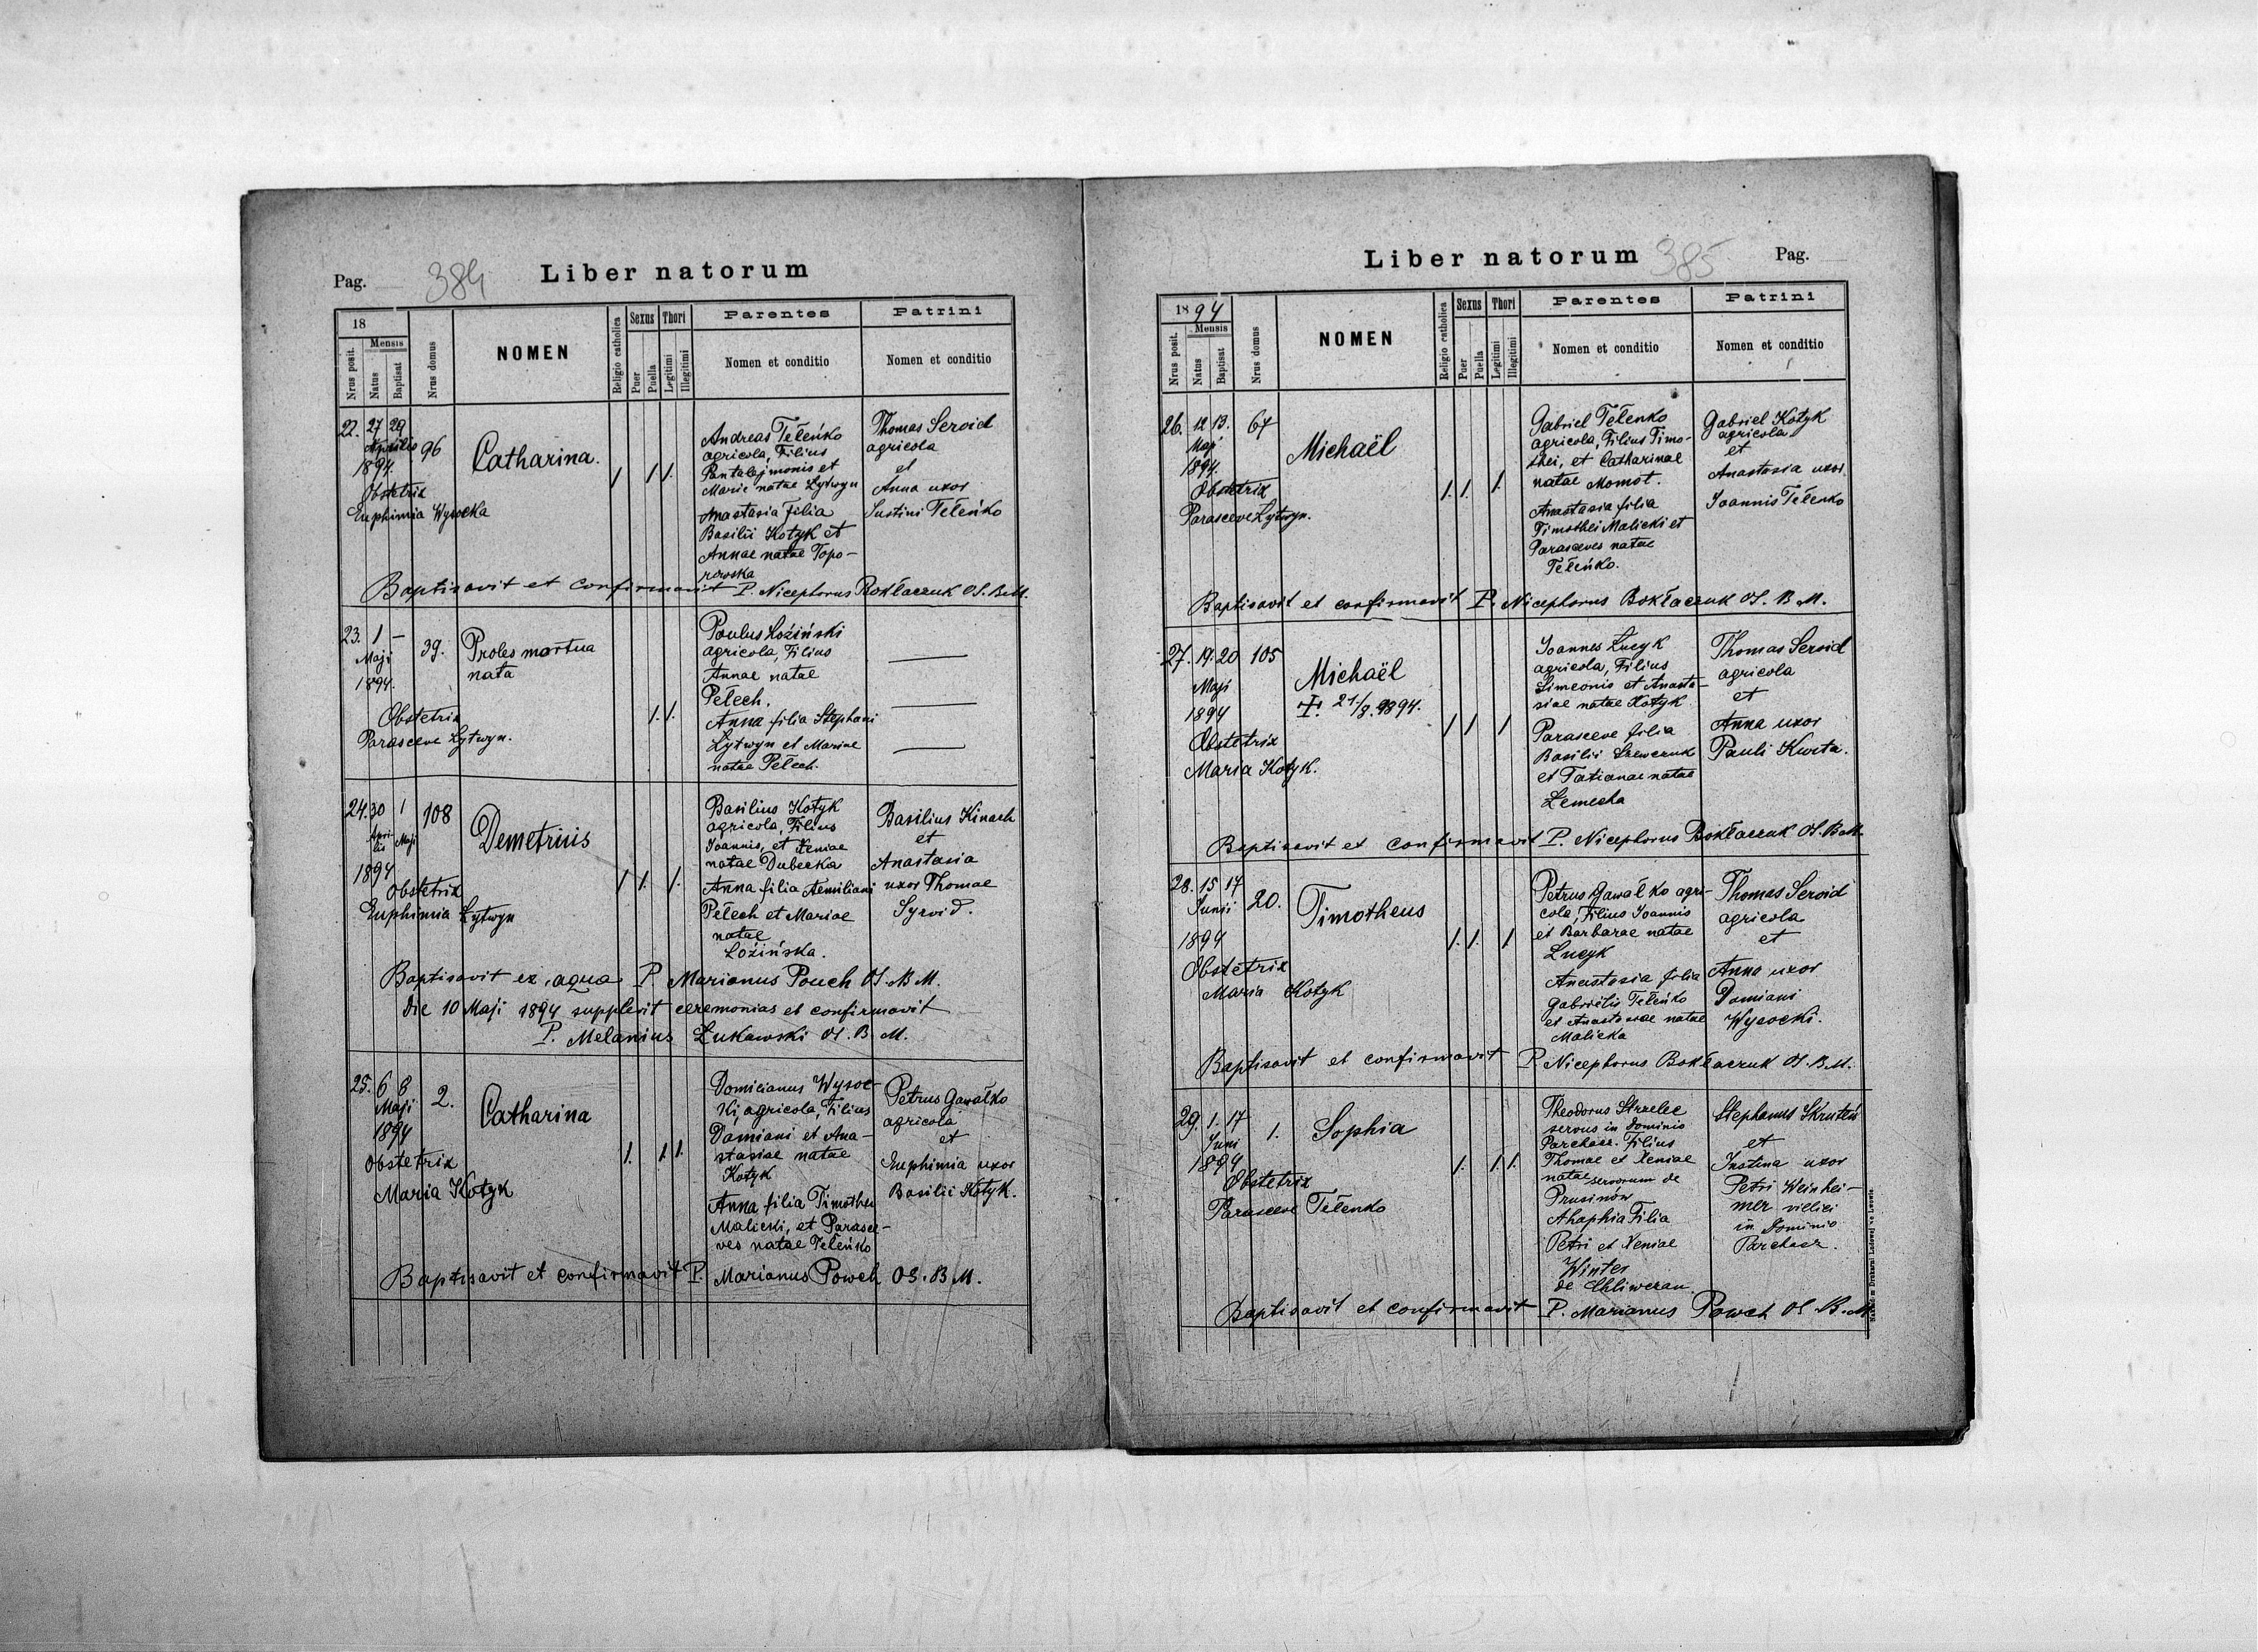 Pag. 384 Liber natorum
18
Nrus posit.
Mensis
Natus
Baptisat
Nrus domus
NOMEN
Religio catholica
Sexus
Puer
Puella
Thori
Legitimi
Illegitimi
Parentes
Nomen et conditio
Patrini
Nomen et conditio
22. 27 29
Aprilis
1894.
96
Obstetrix
Euphimia Wysocka
Catharina.
1 1 1.
Andreas Teleńko
agricola, Filius
Pantalejmonis et
Marie natae Lytwyn
Anastasia filia
Basilii Kotyk et
Annae natae Topo-
rowska
Thomas Seroid
agricola
et
Anna uxor
Justini Teleńko
Baptisavit et confirmavit P. Nicephorus Bokłaczuk OS. B.M.
23. 1 —
Maji
1894.
39.
Obstetrix
Parasceve Lytwyn.
Proles mortua
nata
1. 1.
Paulus Łoziński
agricola, Filius
Annae natae
Pełech.
Anna filia Stephani
Lytwyn et Mariae
natae Pełech.
24. 30 1
Apri-
lis Maji
1894
108
Obstetrix
Euphimia Lytwyn
Demetrius
1 1. 1.
Basilius Kotyk
agricola, Filius
Joannis, et Xeniae
natae Dubecka
Anna filia Aemiliani
Pełech et Mariae
natae
Łozińska.
Basilius Kinach
et
Anastasia
uxor Thomae
Syroid.
Baptisavit ex aqua P. Marianus Powch OS. B M.
Die 10 Maji 1894 supplevit ceremonias et confirmavit
P. Melanius Łukawski OS. B. M.
25. 6 8
Maji
1894
2.
Obstetrix
Maria Kotyk
Catharina
1. 1. 1.
Domicianus Wysoc-
kij agricola, Filius
Damiani et Ana-
stasiae natae
Kotyk
Anna filia Timothei
Malicki, et Parasce-
ves natae Teleńko
Petrus Gawałko
agricola
et
Euphimia uxor
Basilii Kotyk.
Baptisavit et confirmavit P. Marianus Powch OS. B M.
Liber natorum 385 Pag.
1894
Nrus posit.
Mensis
Natus
Baptisat
Nrus domus
NOMEN
Religio catholica
Sexus
Puer
Puella
Thori
Legitimi
Illegitimi
Parentes
Nomen et conditio
Patrini
Nomen et conditio
26. 12 13.
Maji
1894.
64
Obstetrix
Parasceve Lytwyn.
Michaël
1. 1. 1.
Gabriel Telenko
agricola, Filius Timo-
thei, et Catharinae
natae Momot.
Anastasia filia
Timothei Malicki et
Parasceves natae
Teleńko.
Gabriel Kotyk
agricola
et
Anastasia uxor
Joannis Telenko
Baptisavit et confirmavit P. Nicephorus Bokłaczuk OS. B M.
27. 19. 20
Maji
1894
105
Obstetrix
Maria Kotyk.
Michaël
21/8. 1894.
1 1 1
Joannes Łucyk
agricola, Filius
Simeonis et Anasta-
siae natae Kotyk
Parasceve filia
Basilii Szewczuk
et Tatianae natae
Łemecha
Thomas Seroid
agricola
et
Anna uxor
Pauli Kwita.
Baptisavit et confirmavit P. Nicephorus Bokłaczuk OS. B M.
28. 15 17
Junii
1894
20.
Obstetrix
Maria Kotyk
Timotheus
1. 1. 1
Petrus Gawałko agri-
cola, Filius Joannis
et Barbarae natae
Łucyk
Anastasia filia
Gabrielis Teleńko
et Anastasiae natae
Malicka
Thomas Seroid
agricola
et
Anna uxor
Damiani
Wysocki.
Baptisavit et confirmavit P. Nicephorus Bokłaczuk OS. B M.
29. 1. 17
Juni
1894
1.
Obstetrix
Parasceve Telenko
Sophia
1. 1. 1.
Theodorus Strzelec
servus in Dominio
Parchacz. Filius
Thomae et Xeniae
natae servorum de
Prusinów
Ahaphia Filia
Petri et Xeniae
Winter
de Chliwczan.
Stephanus Skruteń
et
Justina uxor
Petri Weinhei-
mer villici
in Dominio
Parchacz.
Baptisavit et confirmavit P. Marianus Powch OS. B. M
Nakładem Drukarni Ludowej we Lwowie